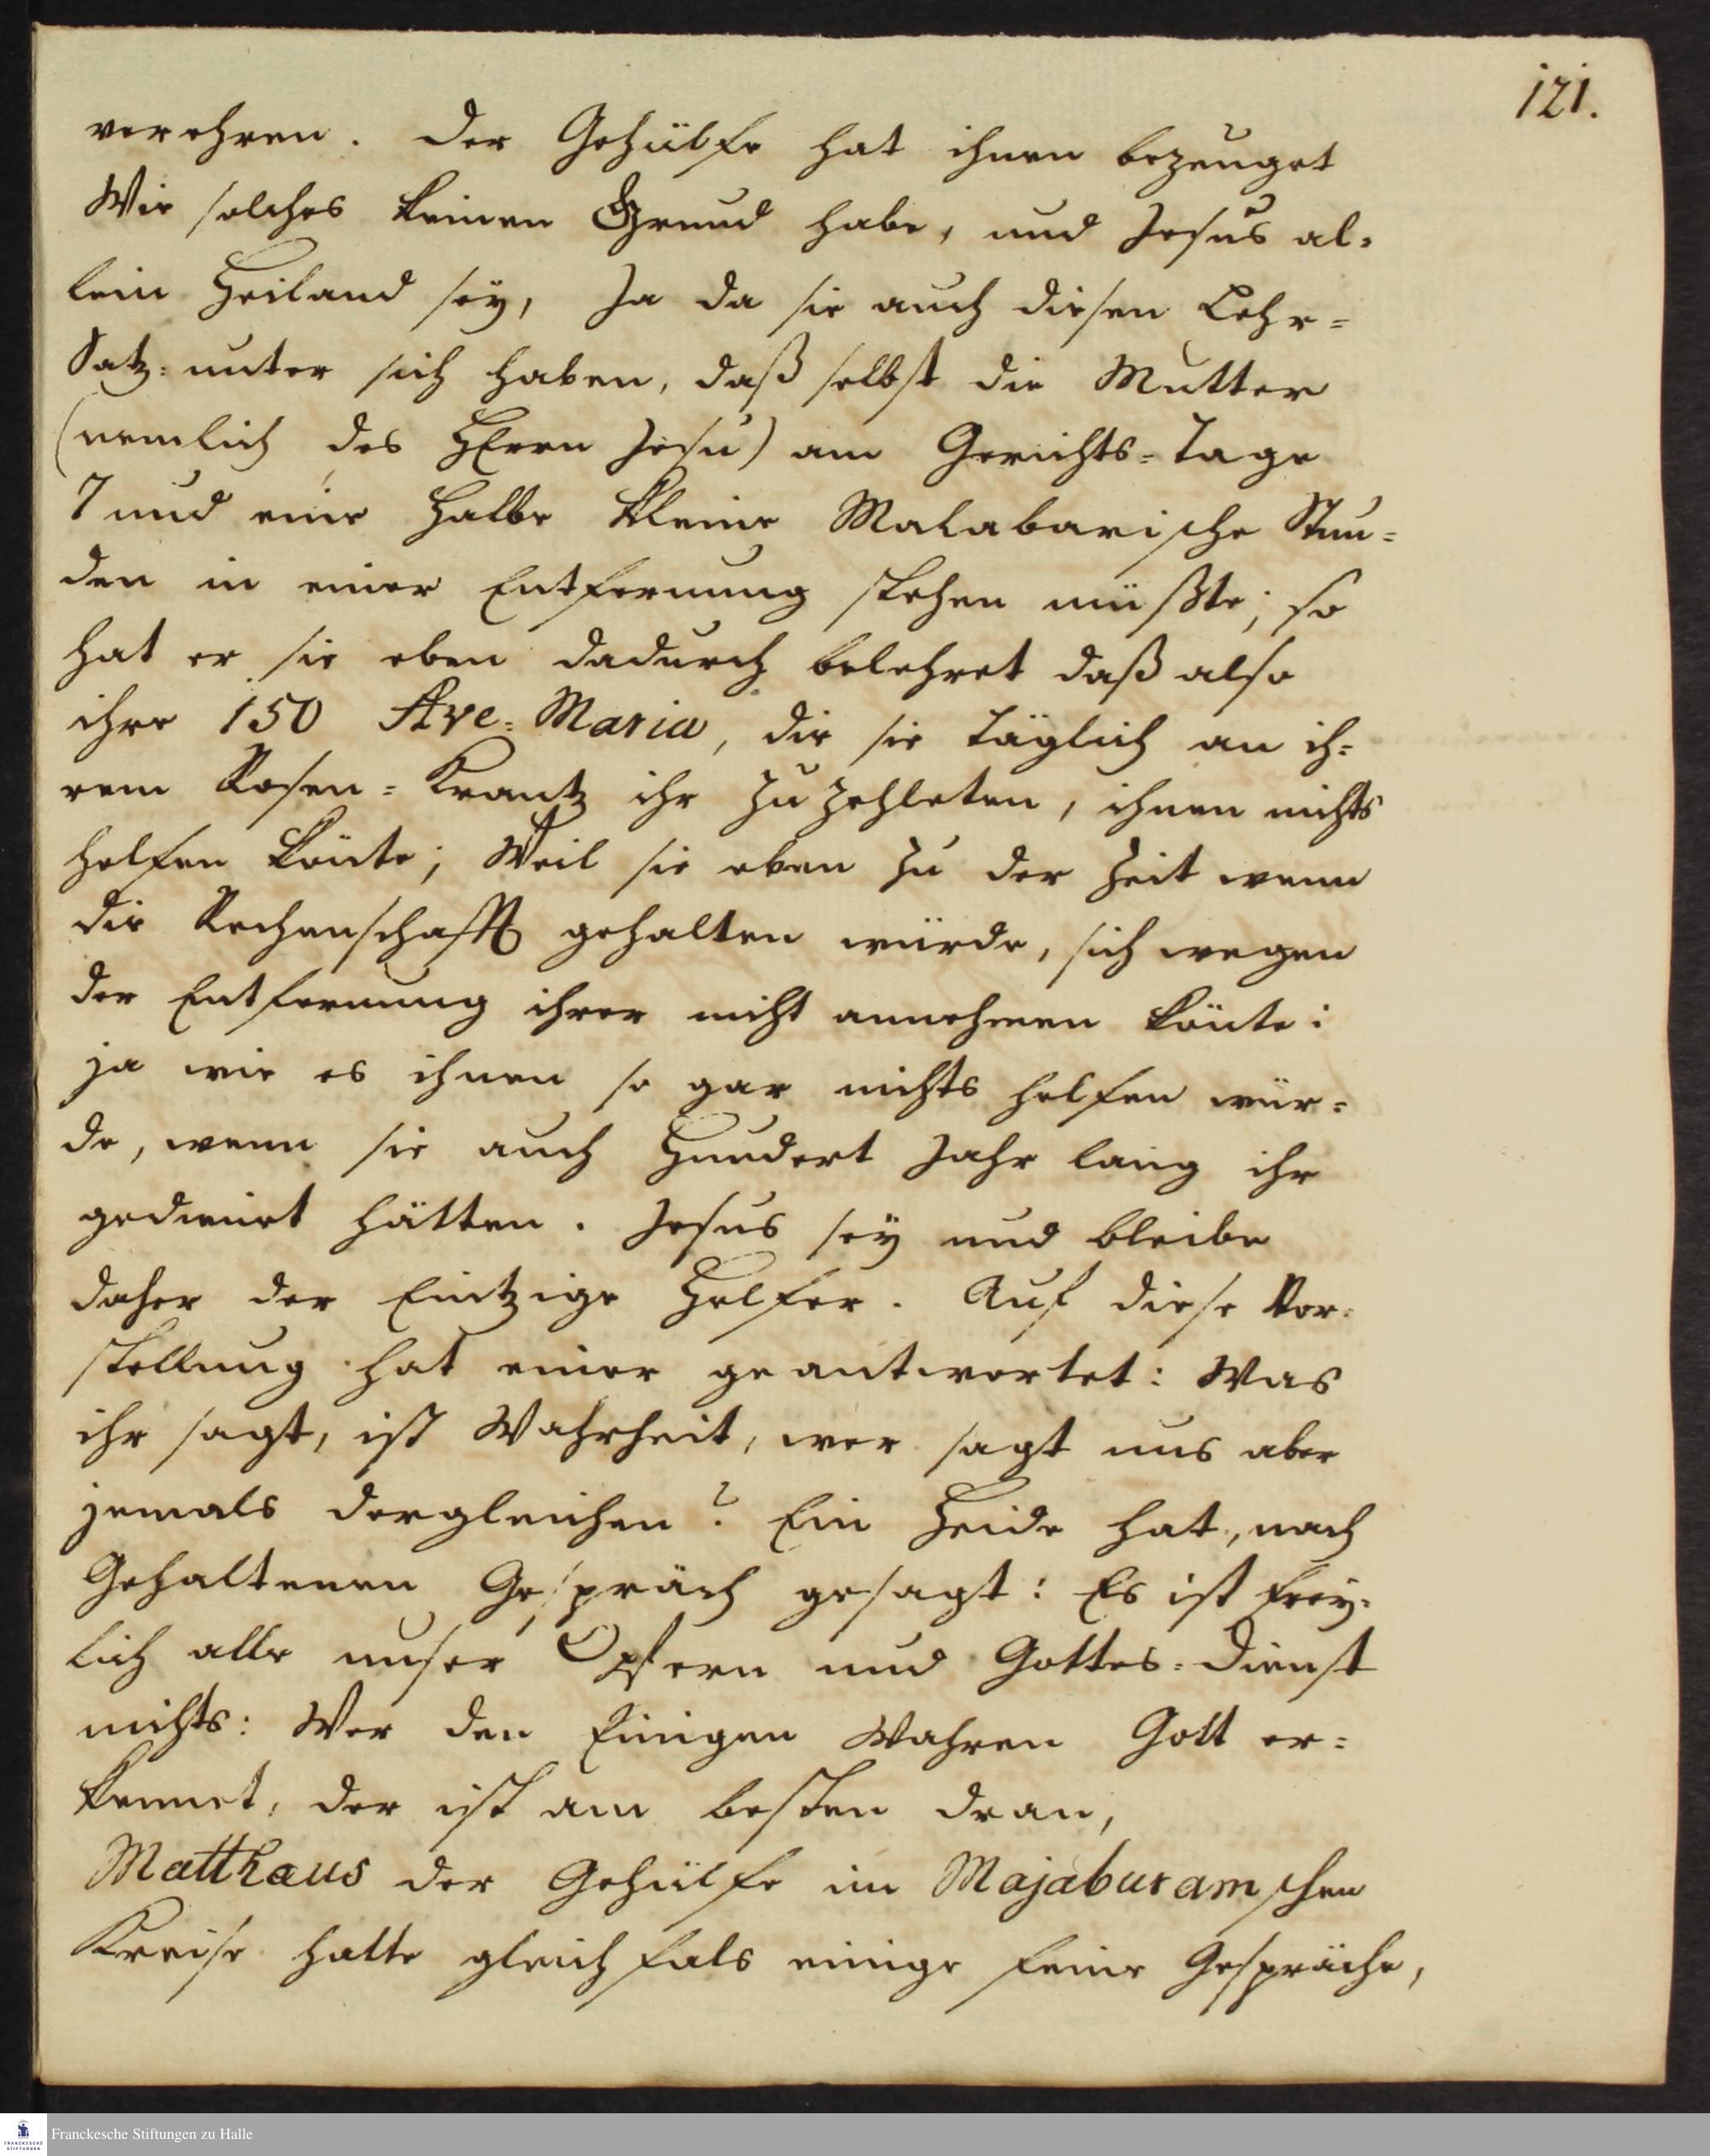 121.
verehren. Der Gehülfe hat ihnen bezeuget
Wie solches keinen Grund habe, und Jesus al-
lein Heiland sey, Ja da sie auch diesen Lehr-
Satz unter sich haben, daß selbst die Mutter
(nemlich des HErrn Jesu) am Gerichts-Tage
7 und eine Halbe kleine Malabarische Stun-
den in einer Entfernung stehen müßte; so
hat er sie eben dadurch belehret daß also
ihre 150 Ave-Maria, die sie täglich an ih-
rem Rosen-Krantz ihr zuzehleten, ihnen nichts
helfen könte; Weil sie eben zu der Zeit wenn
die Rechenschafft gehalten würde, sich wegen
der Entfernung ihrer nicht annehmen könte:
ja wie es ihnen so gar nichts helfen wür-
de, wenn sie auch Hundert Jahr lang ihr
gedienet hätten. Jesus sey und bleibe
daher der Eintzige Helfer. Auf diese Vor-
stellung hat einer geantwortet: Was
ihr sagt, ist Wahrheit, wer sagt uns aber
jemals dergleichen? Ein Heide hat, nach
Gehaltenen Gespräch gesagt: Es ist frey-
lich alle unser Opfern und Gottes-Dienst
nichts: Wer den Einigen Wahren Gott er-
kennet, der ist am besten dran,
Matthæus der Gehülfe im Majaburamschen
Kreise hatte gleichfals einige feine Gespräche,
Franckesche Stiftungen zu Halle
FRANCKESCHE
STIFTUNGEN